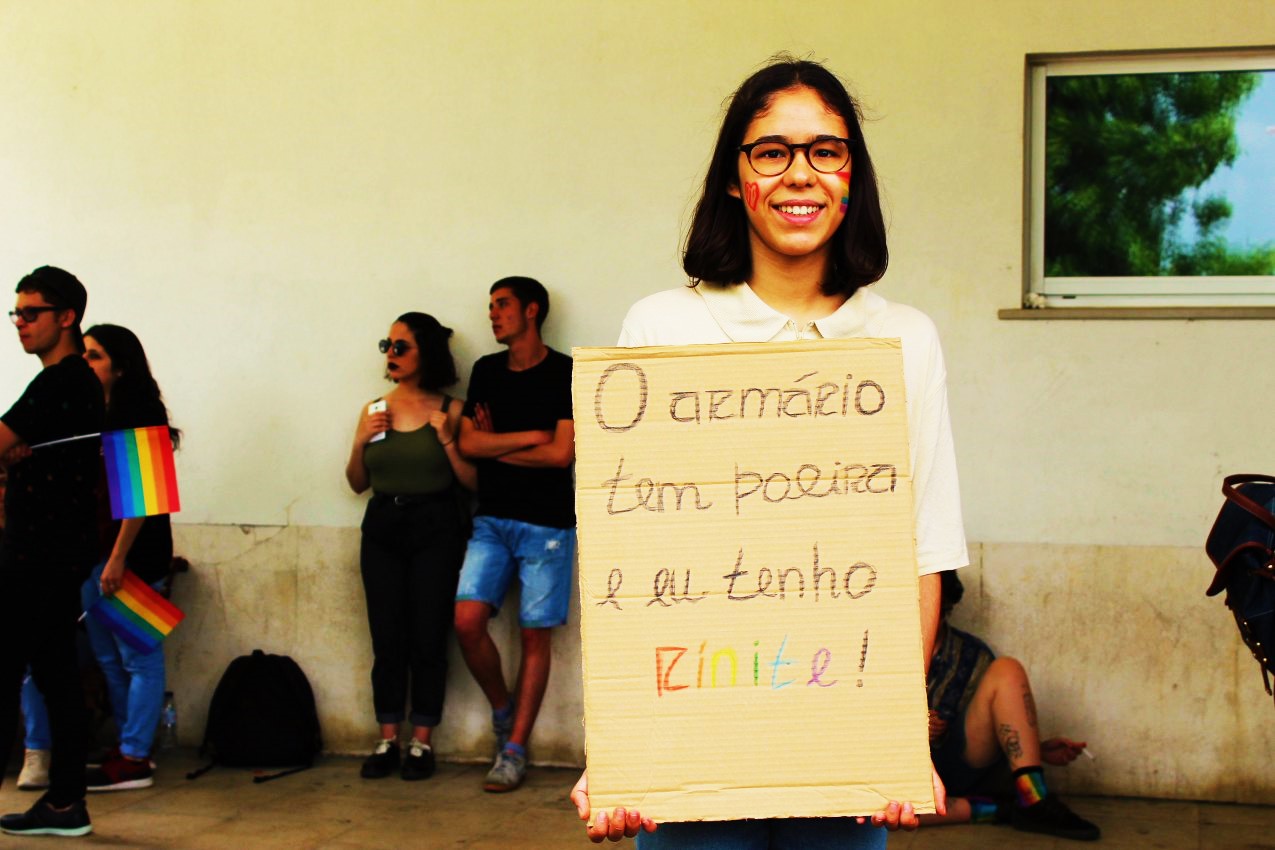 O armário
tem poeira
e eu tenho
Rinite!